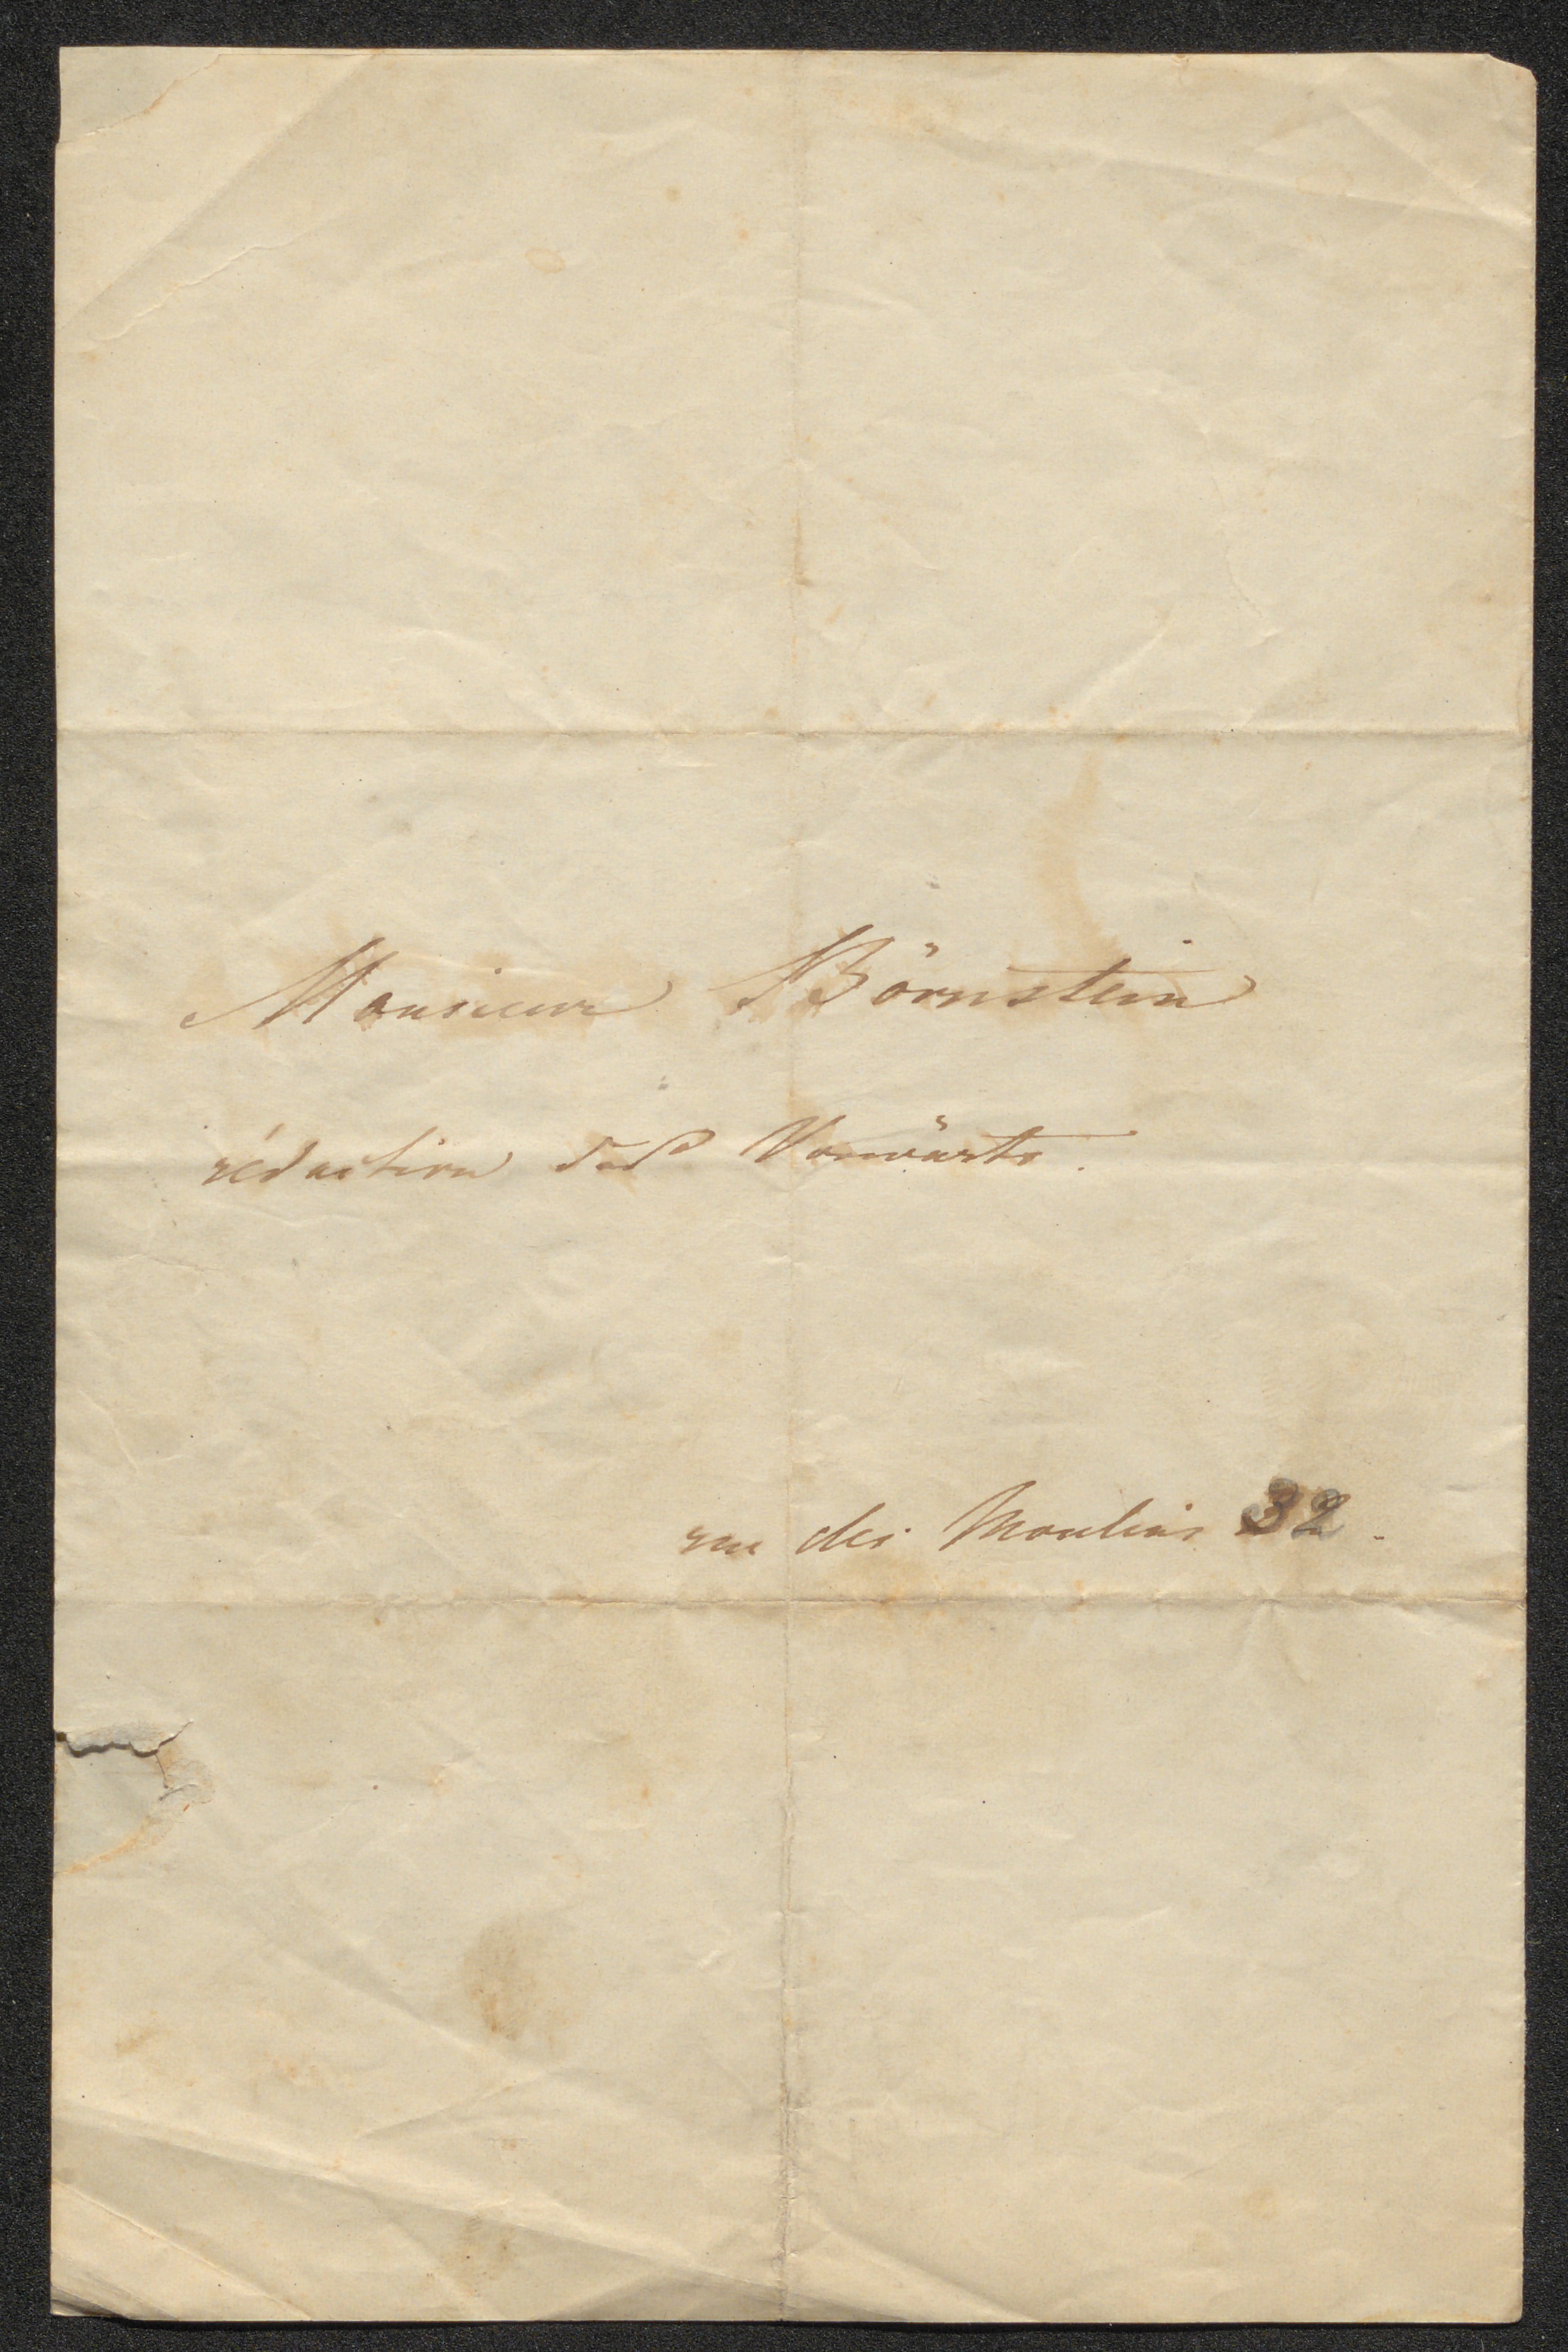 Monsieur Börnstein
rédaction des Vorwärts.
rue des Moulins 32.